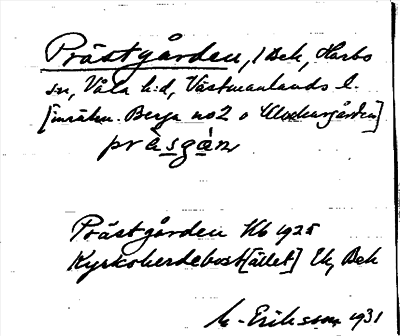 Prästgården, 1 Bek, Harbo
sn, Våla h:d, Västmanlands l.
[inräkn. Berga no 2 o Klockargården]
pràsgán
Prästgården Kb 1925
Kyrkoherdebost[ället] Ek, Bek
M. Eriksson 1931